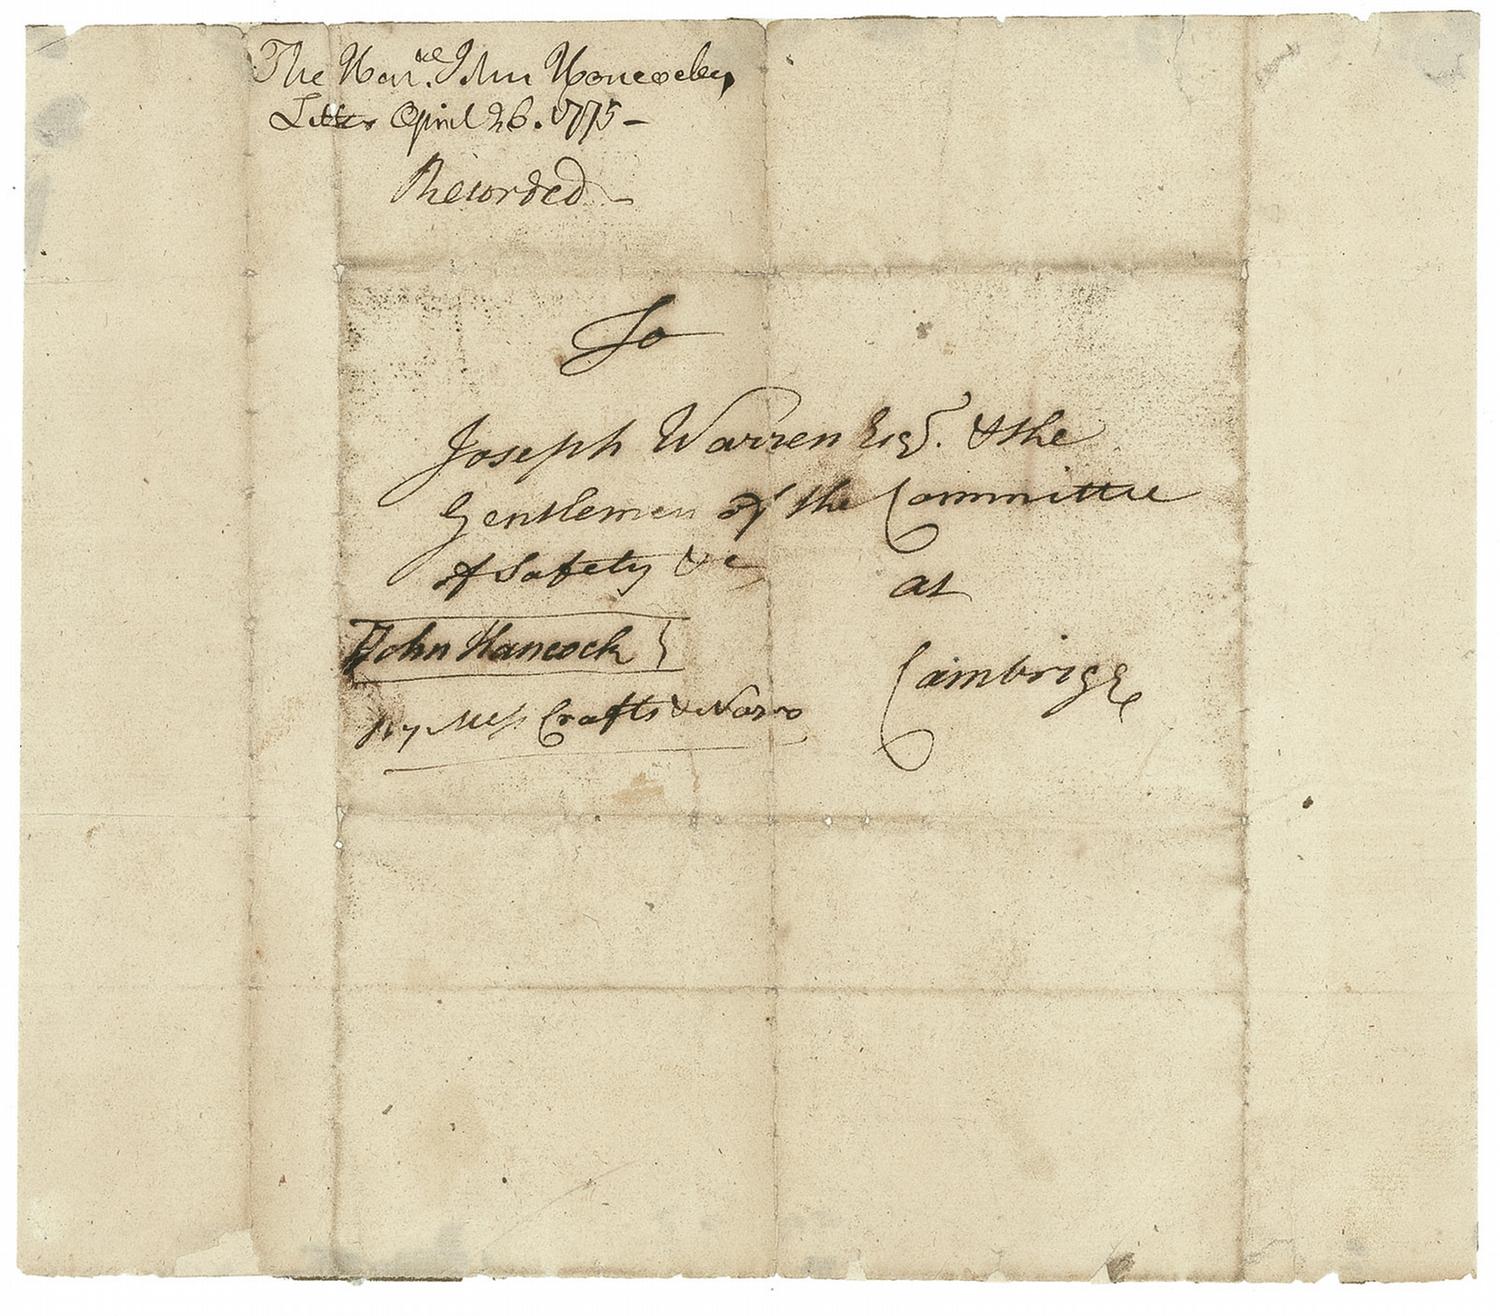 The Hon.ble John Hancocks
Letter April 26. 1775 -
Recorded -
To
Joseph Warren Esqr. & the
Gentlemen of the Committee
of Safety &c
at
John Hancock
Cambrige
Crafts &